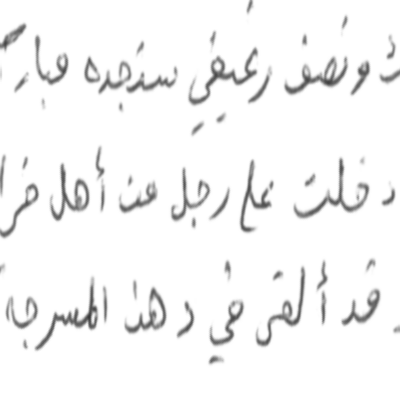 ونصف رغيفي ستجده مبار
دخلت على رجل من أهل خرا
قد ألقى في د هذا المسرجة